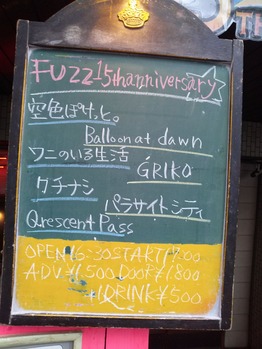 FUZZ 15th anniversary
空色ぽけっと。
Balloon at dawn
ワニのいる生活
GRIKO
クチナシ
パラサイトシティ
Qrescent Pass
OPEN 16:30 START 17:00
ADV ¥1,500 DOOR ¥1,800
+1DRINK ¥500